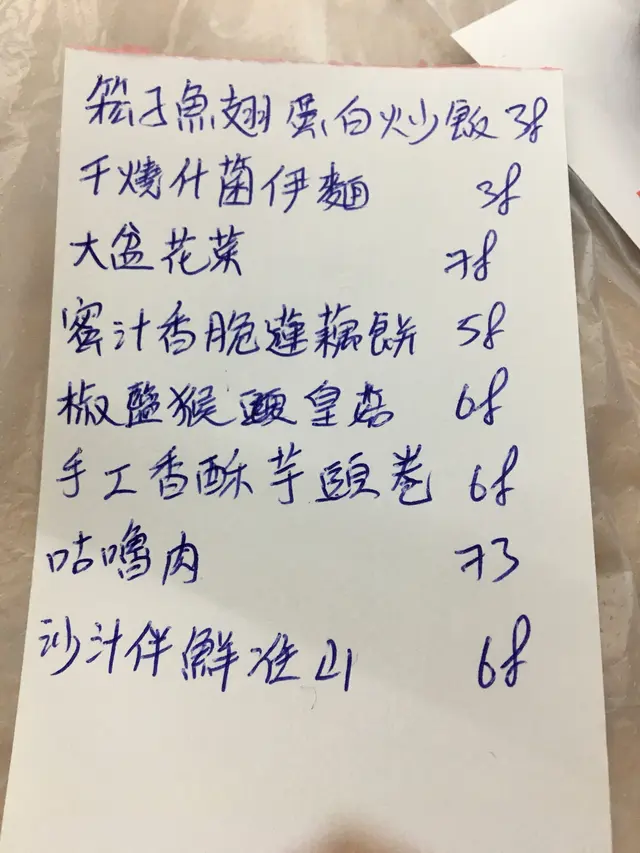 子魚翅蛋白炒飯 38
干燒什菌伊麵 38
大盆花菜 78
蜜汁香脆蓮藕餅 58
椒鹽猴頭皇菇 68
手工香酥芋頭卷 68
咕嚕肉 73
沙汁伴鮮淮山 68